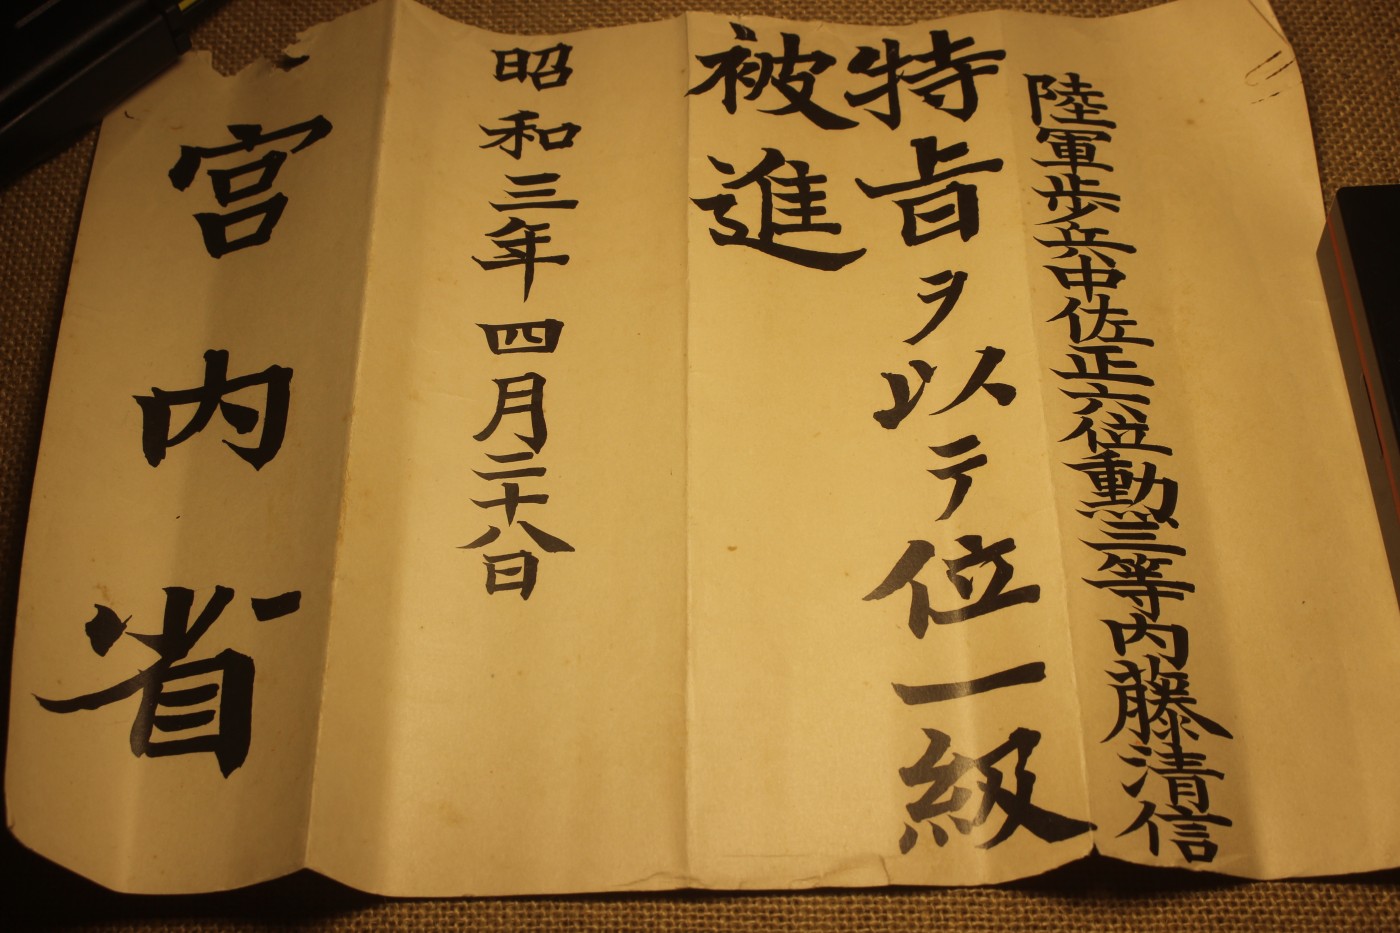 陸軍歩兵中佐正六位勲三等内藤清信
特旨ヲ以テ位一級
被進
昭和三年四月二十八日
宮内省